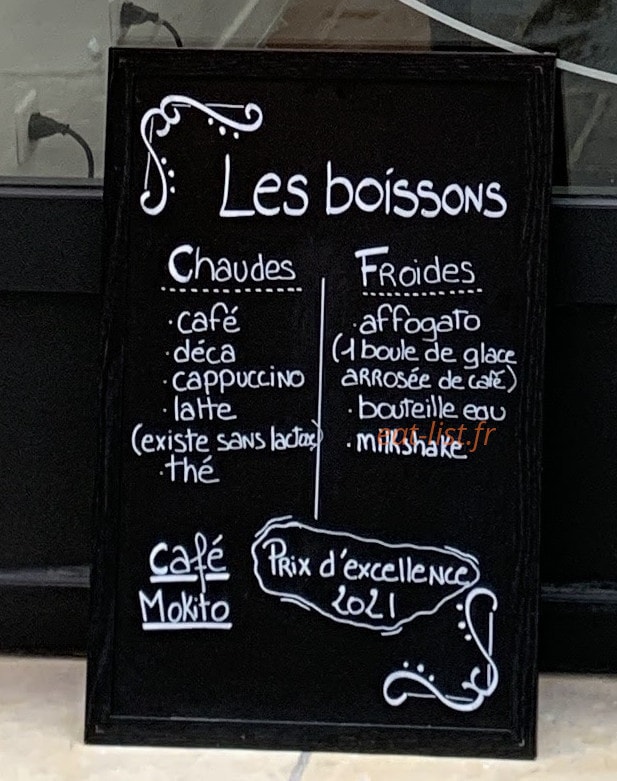 Les boissons
Chaudes
· café
· déca
· cappuccino
· latte
(existe sans lactose)
· thé
Froides
· affogato
(1 boule de glace
arrosée de café)
· bouteille eau
· milkshake
eat-list.fr
Café
Mokito
Prix d'excellence
2021